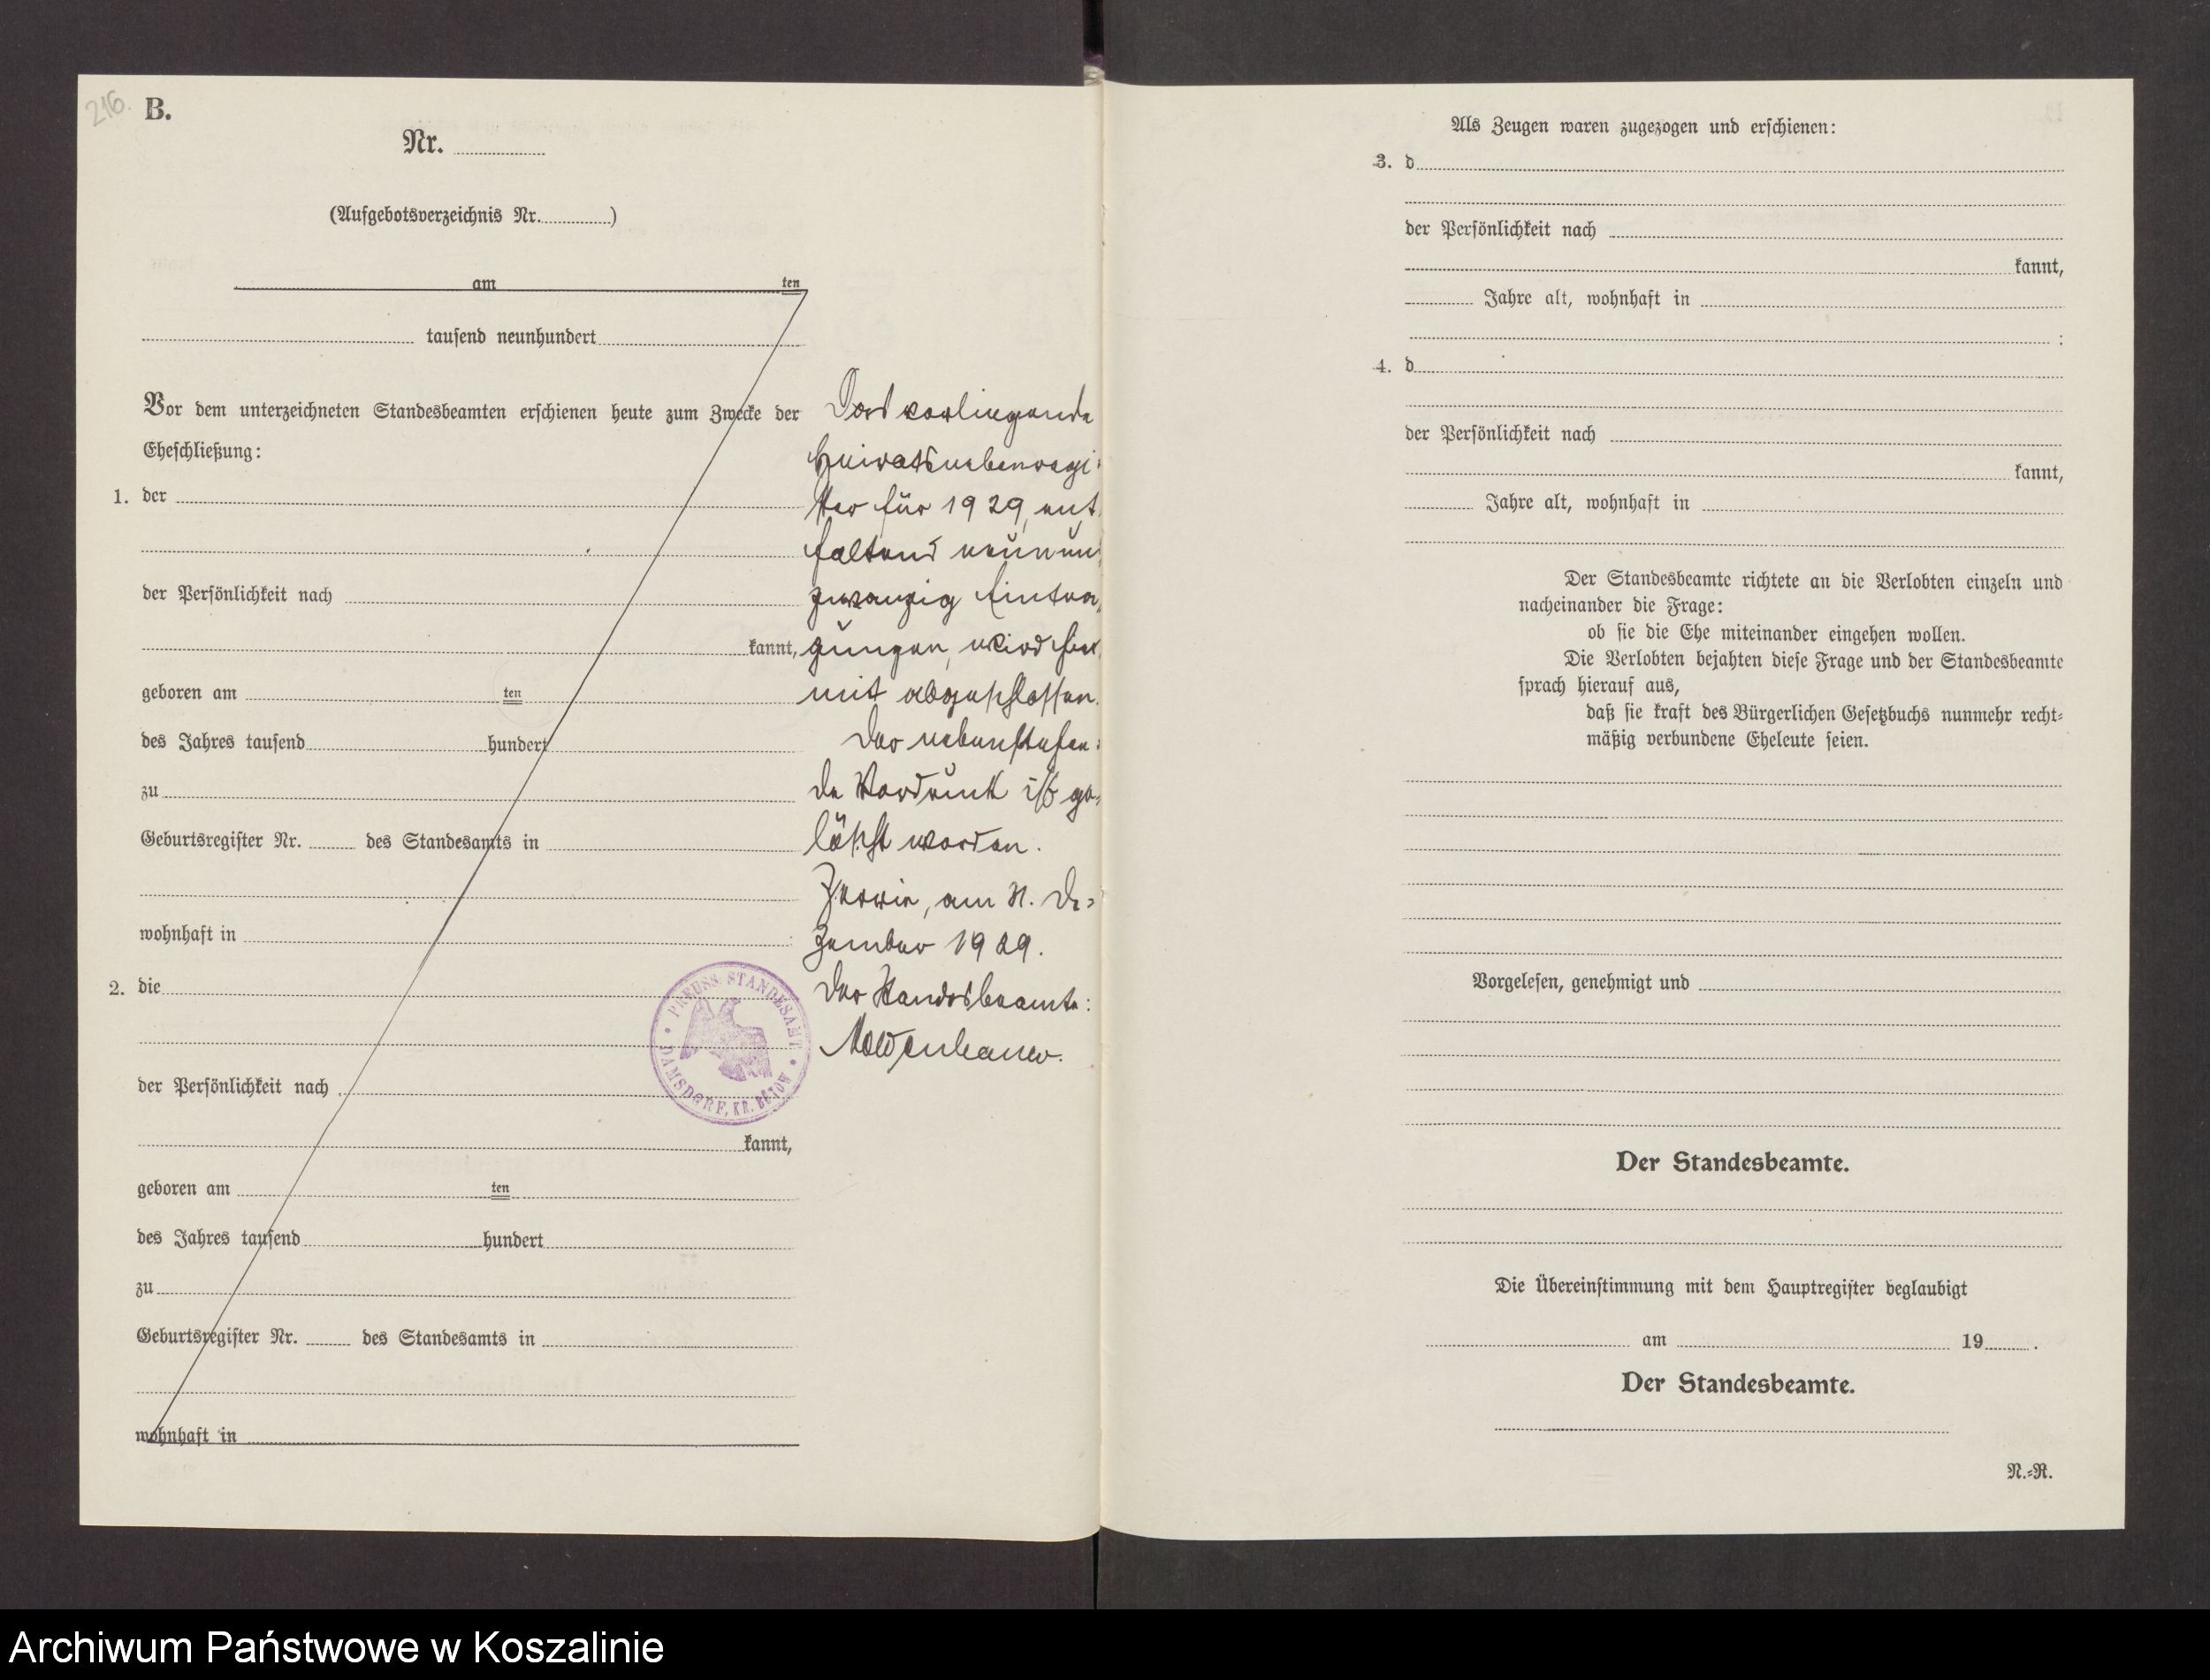 216.
B.
Nr.
(Aufgebotsverzeichnis Nr. )
am ten
tausend neunhundert
Vor dem unterzeichneten Standesbeamten erschienen heute zum Zwecke der
Eheschließung:
1. der
der Persönlichkeit nach
kannt,
geboren am ten
des Jahres tausend hundert
zu
Geburtsregister Nr. des Standesamts in
wohnhaft in :
2. die
der Persönlichkeit nach
kannt,
geboren am ten
des Jahres tausend hundert
zu
Geburtsregister Nr. des Standesamts in
wohnhaft in
Das vorliegende
Heiratsnebenregi-
ster für 1929, ent-
haltend neunund
zwanzig Eintra-
gungen, wird hier
mit abgeschlossen.
Der nebenstehen-
de Vordruck ist ge-
löscht worden.
am 31. De-
zember 1929.
Der Standesbeamte:
PREUSS. STANDESAMT
DAMSDORF, KR. BÜTOW
Als Zeugen waren zugezogen und erschienen:
3. d
der Persönlichkeit nach
kannt,
Jahre alt, wohnhaft in
:
4. d
der Persönlichkeit nach
kannt,
Jahre alt, wohnhaft in
Der Standesbeamte richtete an die Verlobten einzeln und
nacheinander die Frage:
ob sie die Ehe miteinander eingehen wollen.
Die Verlobten bejahten diese Frage und der Standesbeamte
sprach hierauf aus,
daß sie kraft des Bürgerlichen Gesetzbuchs nunmehr recht-
mäßig verbundene Eheleute seien.
Vorgelesen, genehmigt und
Der Standesbeamte.
Die Übereinstimmung mit dem Hauptregister beglaubigt
am 19 .
Der Standesbeamte.
N.-R.
Archiwum Państwowe w Koszalinie